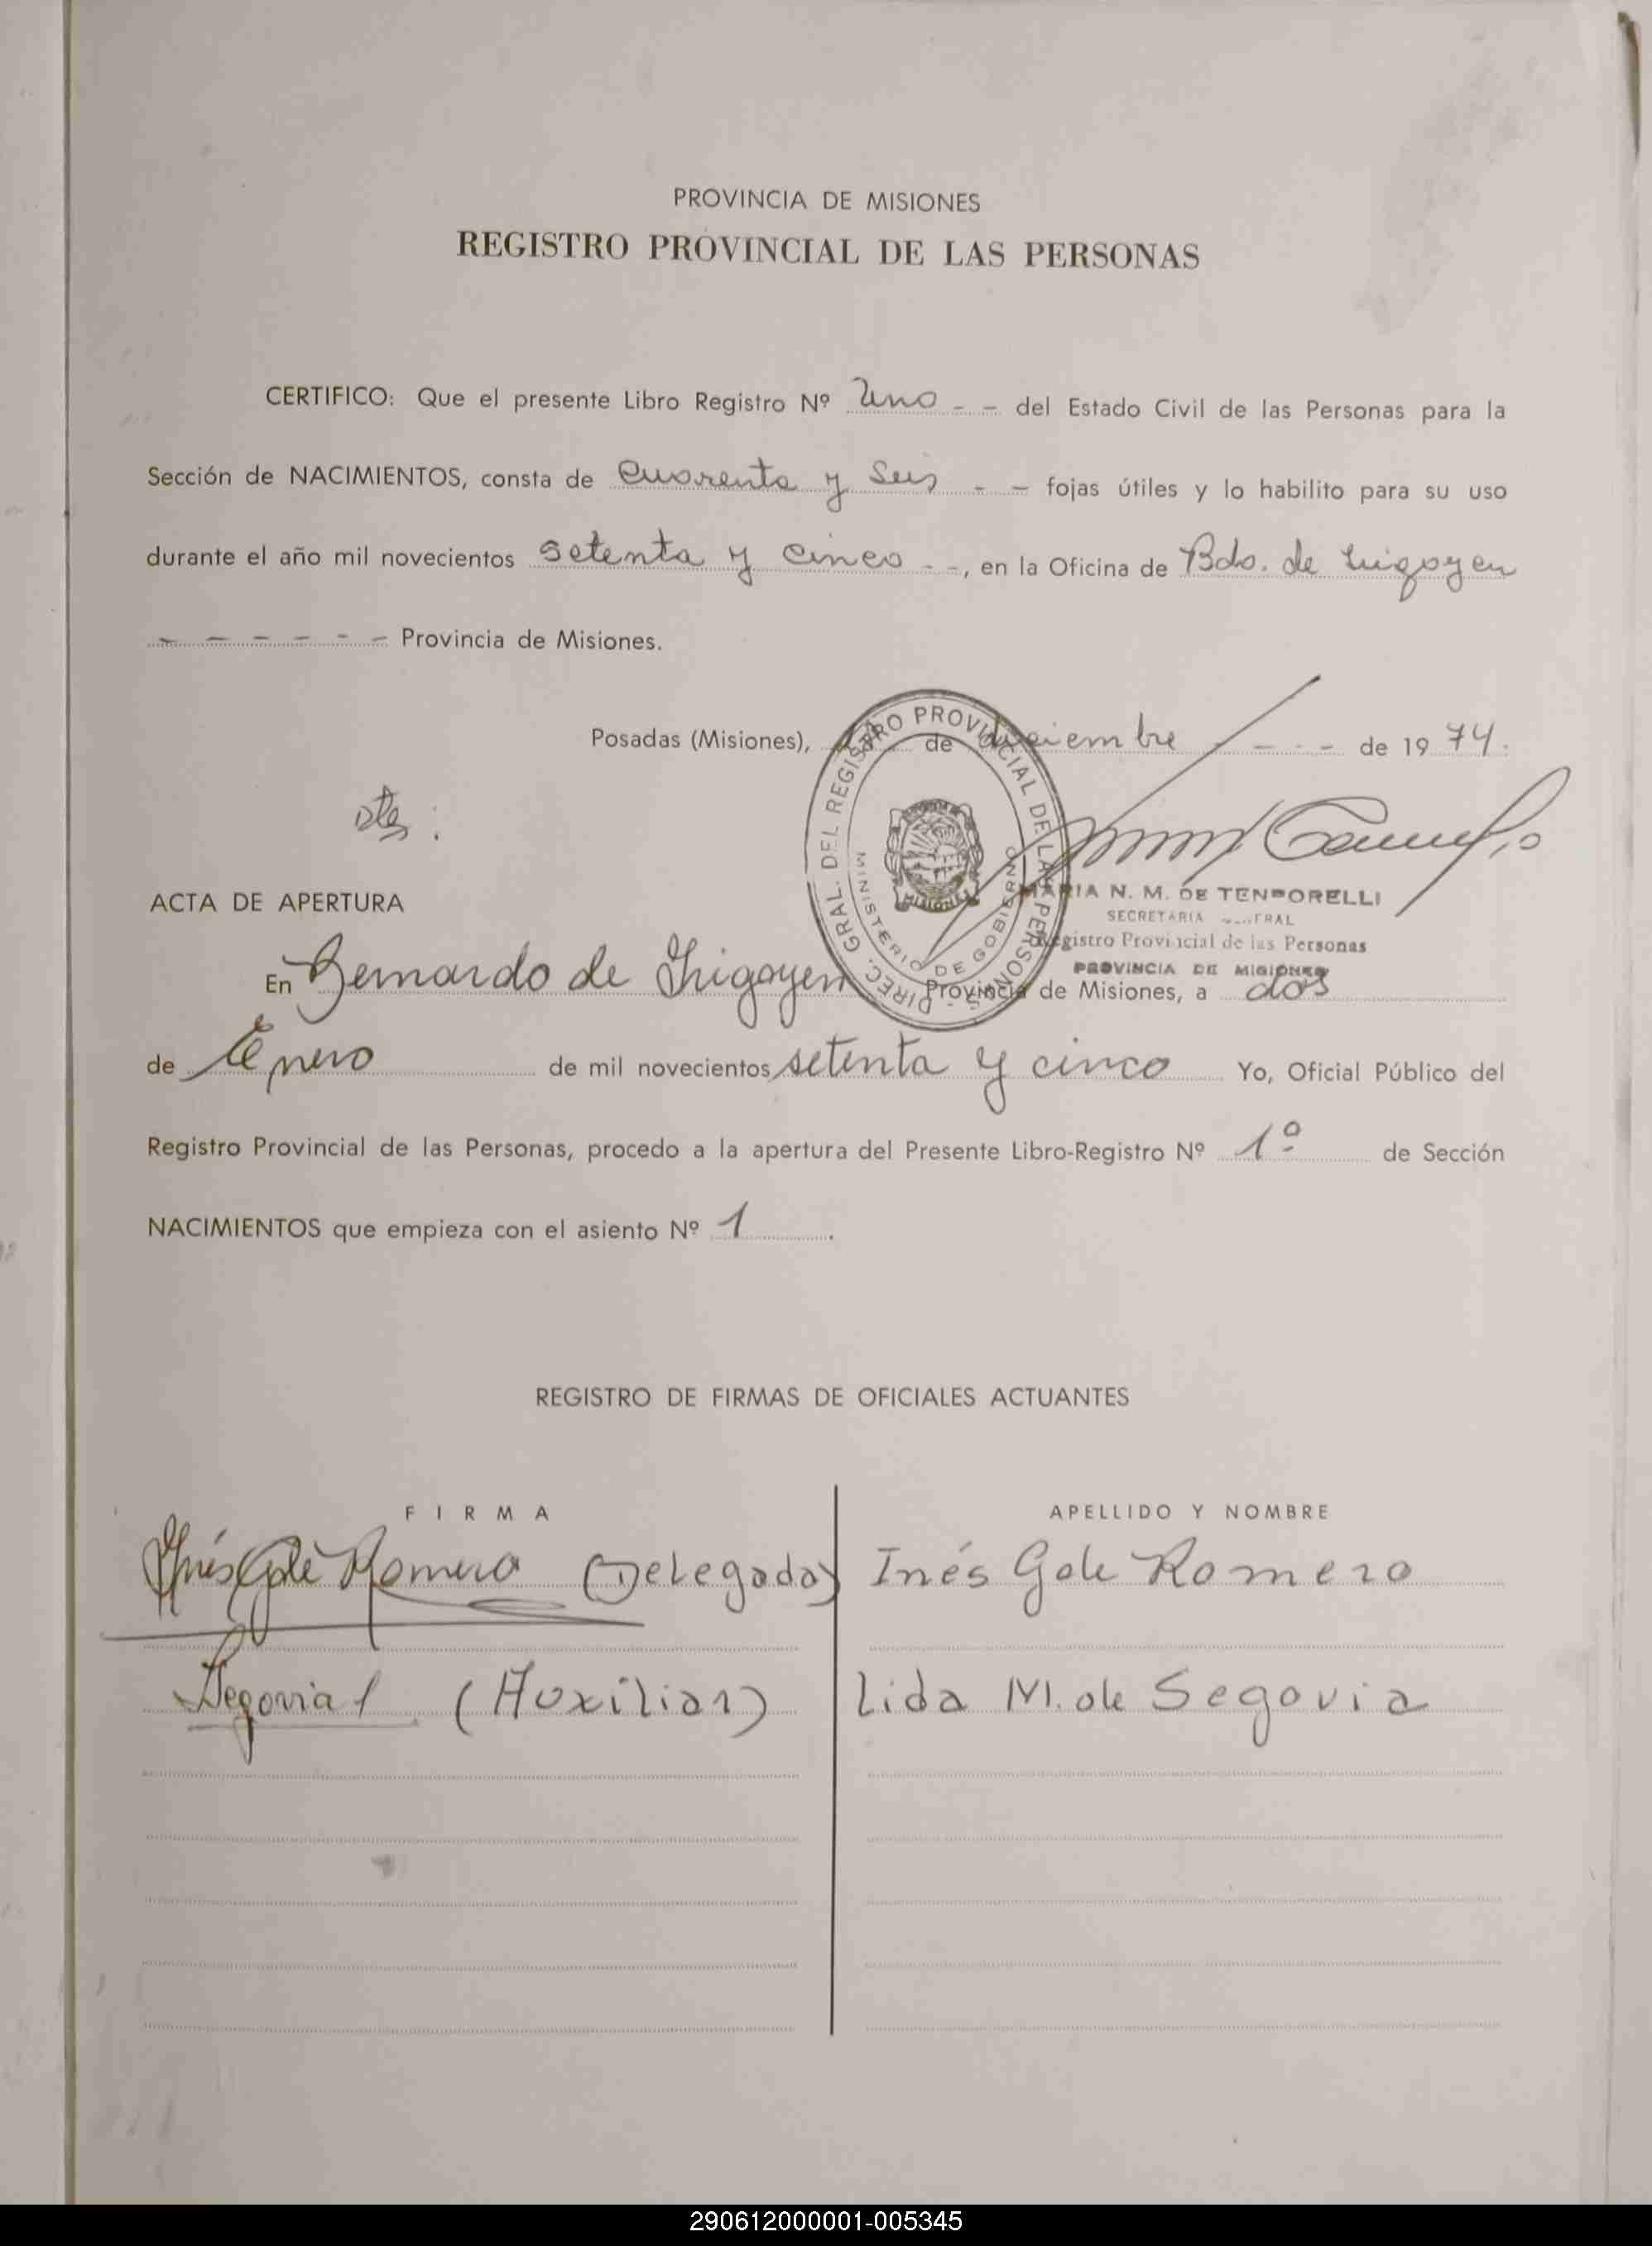 PROVINCIA DE MISIONES
REGISTRO PROVINCIAL DE LAS PERSONAS
CERTIFICO: Que el presente Libro Registro Nº Uno - - del Estado Civil de las Personas para la
Sección de NACIMIENTOS, consta de Cuarenta y Seis - - fojas útiles y lo habilito para su uso
durante el año mil novecientos setenta y cinco - -, en la Oficina de Bdo. de Irigoyen
- - - - - - Provincia de Misiones.
Posadas (Misiones), de diciembre - - - de 1974.
DIREC. GRAL. DEL REGISTRO PROVINCIAL DE LAS PERSONAS
MINISTERIO DE GOBIERNO
MISIONES
MARIA N. M. DE
SECRETARIA
Registro Provincial de las Personas
PROVINCIA DE MISIONES
ACTA DE APERTURA
En Bernardo de Irigoyen Provincia de Misiones, a dos
de Enero de mil novecientos setenta y cinco Yo, Oficial Público del
Registro Provincial de las Personas, procedo a la apertura del Presente Libro-Registro Nº 1º de Sección
NACIMIENTOS que empieza con el asiento Nº 1.
REGISTRO DE FIRMAS DE OFICIALES ACTUANTES
FIRMA APELLIDO Y NOMBRE
Inés Gole Romero (Delegada) Inés Gole Romero
Segovia (Auxiliar) Lida M. de Segovia
290612000001-005345